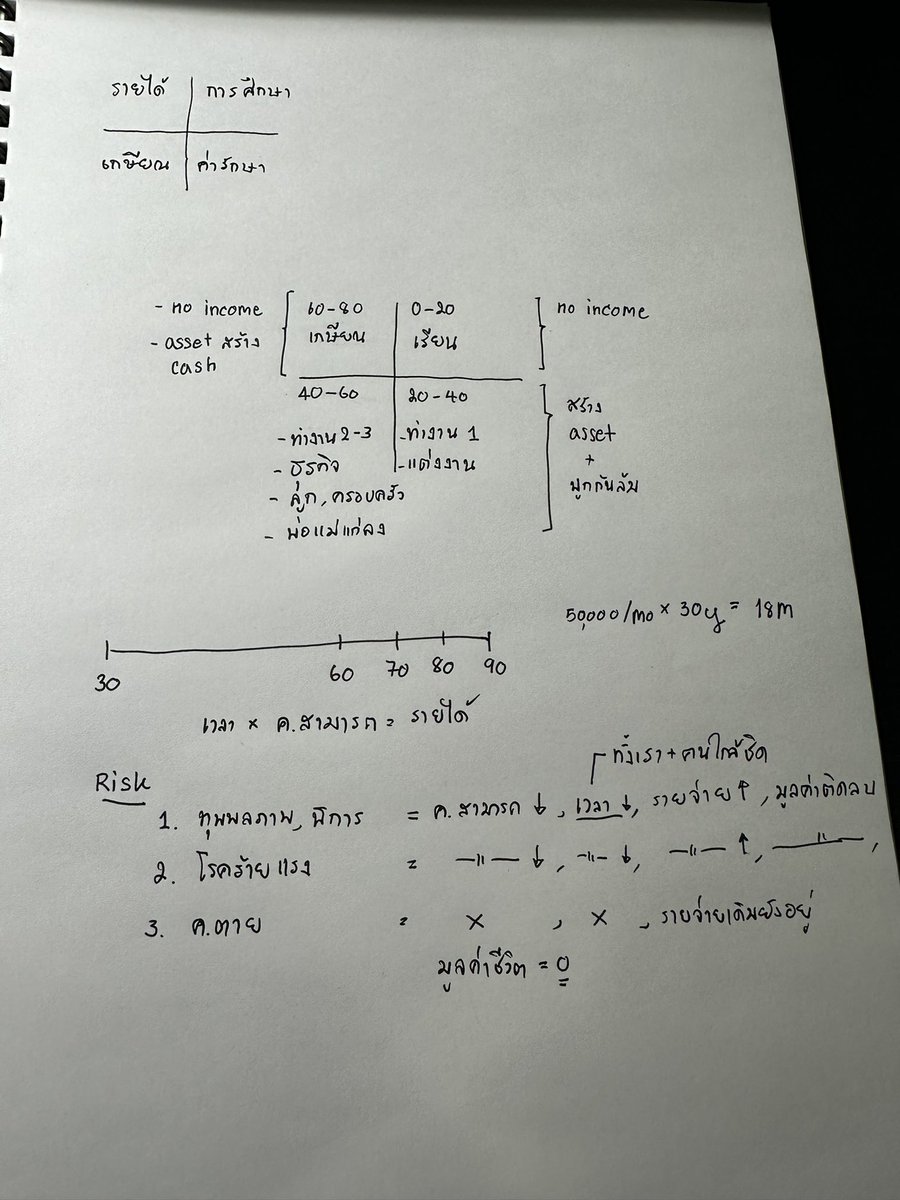 รายได้ การศึกษา
เกษียณ ค่ารักษา
- no income 60-80 0-20 no income
- asset สร้าง เกษียณ เรียน
cash
40-60 20-40 สร้าง
- ทำงาน 2-3 - ทำงาน 1 asset
- ธุรกิจ - แต่งงาน +
- ลูก, ครอบครัว ฟูกกันล้ม
- พ่อแม่แก่ลง
50,000/mo × 30y = 18m
30 60 70 80 90
เวลา × ค.สามารถ = รายได้
ทั้งเรา + คนใกล้ชิด
Risk
1. ทุพพลภาพ, พิการ = ค.สามารถ ↓, เวลา ↓, รายจ่าย ↑, มูลค่าติดลบ
2. โรคร้ายแรง = —"— ↓, —"— ↓, —"— ↑, —"—,
3. ค.ตาย = × , × , รายจ่ายเดิมยังอยู่
มูลค่าชีวิต = 0